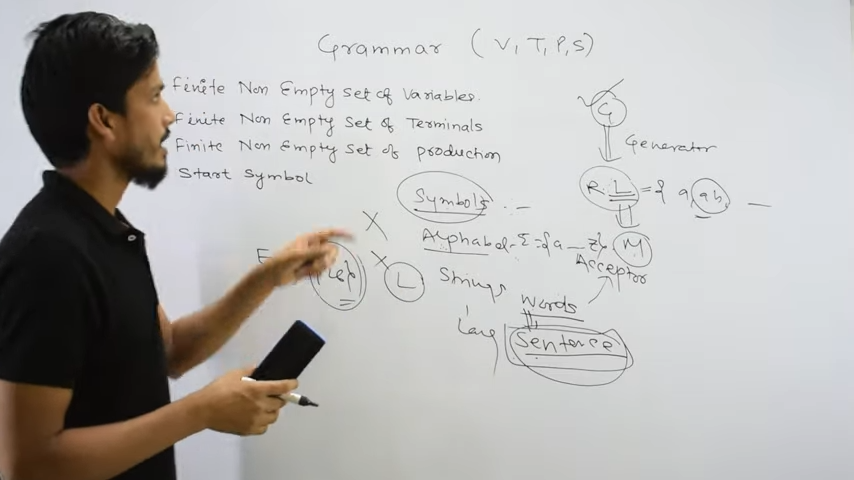 Grammar (V, T, P, S)
Finite Non Empty set of Variables.
Finite Non Empty Set of Terminals
Finite Non Empty set of production
Start Symbol
G
Generator
R L = { a, ab,
Symbols
Alphabet - Σ = {a — z}
M
Acceptor
L
Strings
Words
Lang
Sentence